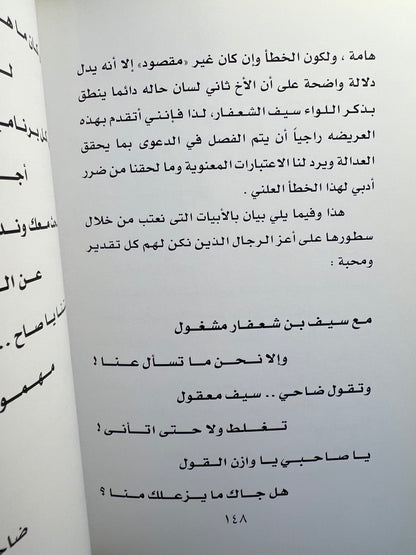 هامة ، ولكون الخطأ وإن كان غير «مقصود» إلا أنه يدل
دلالة واضحة على أن الأخ ثاني لسان حاله دائما ينطق
بذكر اللواء سيف الشعفار، لذا فإنني أتقدم بهذه
العريضه راجياً أن يتم الفصل في الدعوى بما يحقق
العدالة ويرد لنا الاعتبارات المعنوية وما لحقنا من ضرر
أدبي لهذا الخطأ العلني .
هذا وفيما يلي بيان بالأبيات التى نعتب من خلال
سطورها على أعز الرجال الذين نكن لهم كل تقدير
ومحبة :
مع سيف بن شعفار مشغول
وإلا نحن ما تسأل عنا !
وتقول ضاحي .. سيف معقول
تغلط ولا حتى اتأنى !
يا صاحبي يا وازن القول
هل جاك ما يزعلك منا ؟
١٤٨
ان ما ه
كل برنامج
أجـ
معك وند
عن الـ
يا صاح ..
مهمو
ضاح